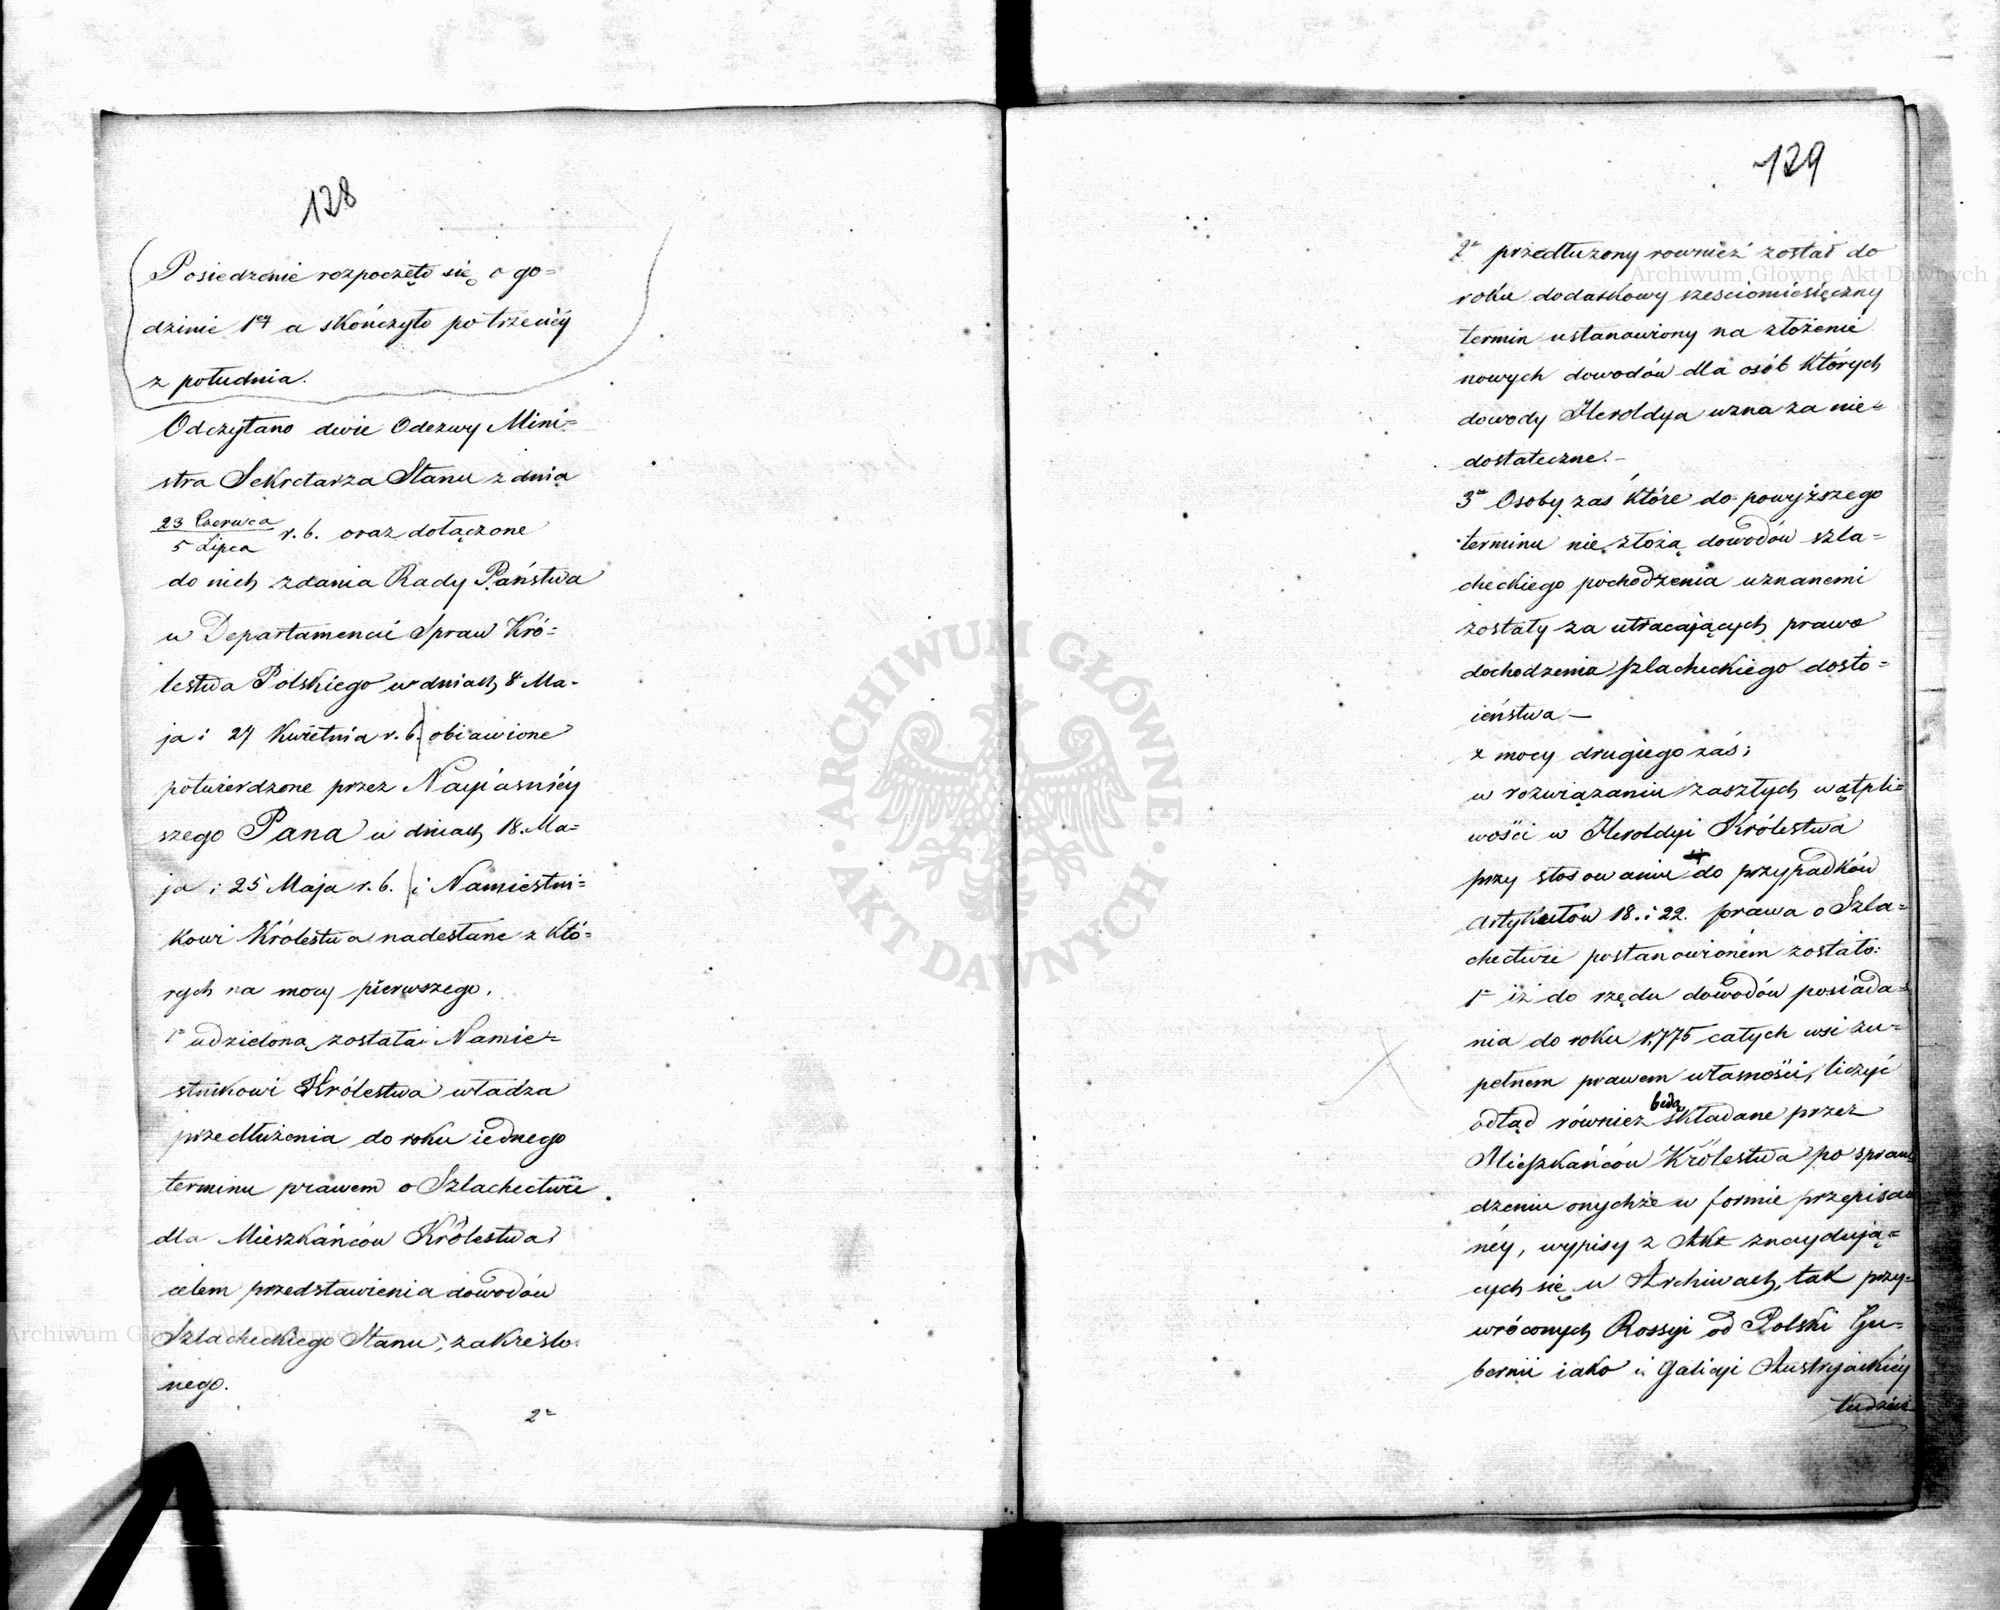 128
Posiedzenie rozpoczęło się o go=
dzinie 1ey a skończyło po trzeciéy
z południa.
Odczytano dwie Odezwy Mini=
stra Sekretarza Stanu z dnia
23 Czerwca
5 Lipca r. b. oraz dołączone
do nich zdania Rady Państwa
w Departamencie Spraw Kró=
lestwa Polskiego w dniach 8 Ma=
ja i 27 Kwietnia r. b. obiawione
potwierdzone przez Nayiaśniéy
szego Pana w dniach 18. Ma=
ja i 25 Maja r. b. i Namiestni=
kowi Królestwa nadesłane z któ=
rych na mocy pierwszego.
1e udzieloną została Namie=
stnikowi Królestwa władza
przedłużenia do roku iednego
terminu prawem o Szlachectwie
dla Mieszkańców Królestwa
celem przedstawienia dowodów
Szlacheckiego Stanu, zakreślo=
nego.
2e
129
2e przedłużony rownież został do
roku dodatkowy sześciomiesięczny
termin ustanowiony na złożenie
nowych dowodów dla osób których
dowody Heroldya uzna za nie=
dostateczne.—
3e Osoby zaś które do powyższego
terminu nie złożą dowodów szla=
checkiego pochodzenia uznanemi
zostały za utracających prawo
dochodzenia szlacheckiego dosto=
ieństwa —
z mocy drugiego zaś;
w rozwiązaniu zaszłych wątpli=
wości w Heroldyi Królestwa
przy stosowaniu do przypadków
artykułów 18. i 22. prawa o Szla=
chectwie postanowioném zostało:
1e iż do rzędu dowodów posiada=
nia do roku 1775 całych wsi zu=
pełnem prawem własności, liczyć
odtąd również będą składane przez
Mieszkańców Królestwa po spraw
dzeniu onychże w formie przepisa
néy, wypisy z Akt znaydują=
cych się w Archiwach, tak przy=
wróconych Rossyi od Polski Gu=
bernii iako i Galicyi Austryackiéy
tudzież
ARCHIWUM GŁÓWNE · AKT DAWNYCH ·
Archiwum Główne Akt Dawnych
Archiwum Główne Akt Dawnych